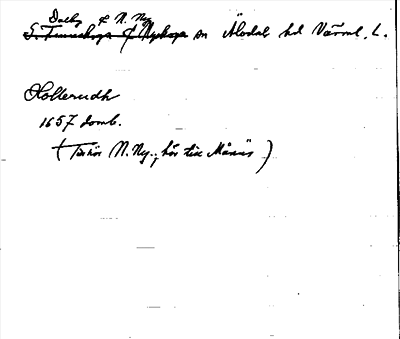 Dalby & N. Ny
S. Finnskoga & Nyskoga sn Älvdals hd Värml. L.
Hollerudh
1657 domb.
( N. Ny., hör till Månäs )